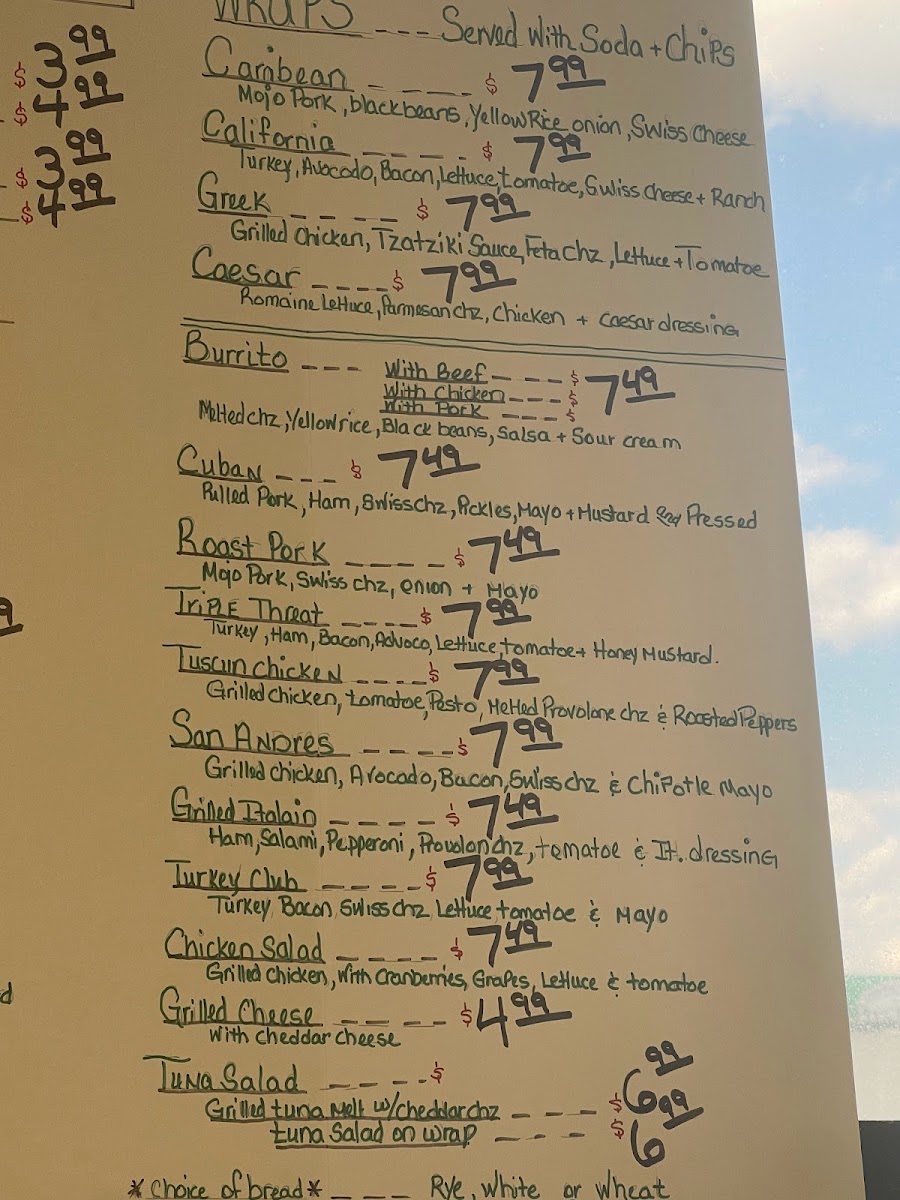 WRAPS --- Served With Soda + Chips
$ 3.99
$ 4.99
$ 3.99
$ 4.99
Caribean ----- $ 7.99
Mojo Pork, blackbeans, Yellow Rice onion, Swiss Cheese
California ----- $ 7.99
Turkey, Avocado, Bacon, Lettuce, tomatoe, Swiss cheese + Ranch
Greek ---- $ 7.99
Grilled Chicken, Tzatziki Sauce, Feta Chz, Lettuce + Tomatoe
Caesar ---- $ 7.99
Romaine Lettuce, Parmesan chz, Chicken + Caesar dressing
Burrito --- With Beef ---- $ 7.49
With Chicken --- $
With Pork --- $
Melted chz, Yellow rice, Black beans, Salsa + Sour cream
Cuban --- $ 7.49
Pulled Pork, Ham, Swiss chz, Pickles, Mayo + Mustard Pressed
Roast Pork ----- $ 7.49
Mojo Pork, Swiss chz, onion + Mayo
Triple Threat ---- $ 7.99
Turkey, Ham, Bacon, Advoco, Lettuce, tomatoe + Honey Mustard.
Tuscun Chicken ---- $ 7.99
Grilled chicken, tomatoe, Pesto, Melted Provolone chz & Roasted Peppers
San Andres ---- $ 7.99
Grilled chicken, Avocado, Bacon, Swiss chz & Chipotle Mayo
Grilled Italain ----- $ 7.49
Ham, Salami, Pepperoni, Provolon chz, tomatoe & It. dressing
Turkey Club ---- $ 7.99
Turkey Bacon Swiss chz Lettuce tomatoe & Mayo
Chicken Salad ---- $ 7.49
Grilled chicken, With Cranberries, Grapes, Lettuce & tomatoe
d
Grilled Cheese ---- $ 4.99
With cheddar cheese
Tuna Salad ---- $
Grilled tuna Melt w/cheddar chz --- $ 6.99
tuna Salad on wrap --- $ 6.99
* Choice of bread * --- Rye, White or Wheat